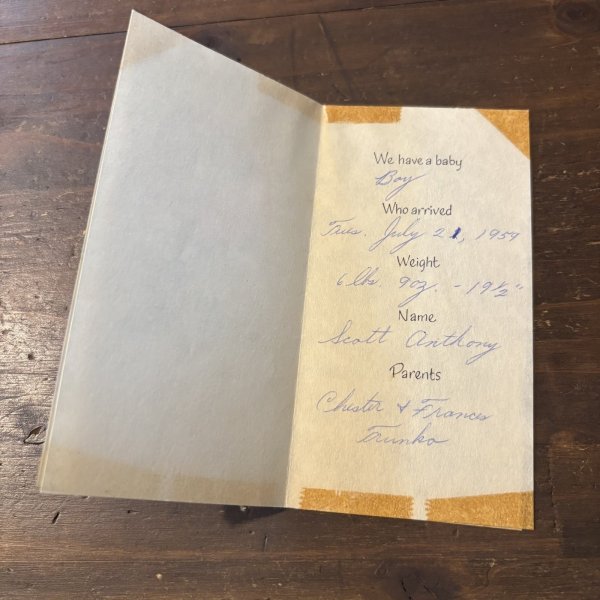 We have a baby
Boy
Who arrived
Tues. July 21, 1959
Weight
6 lbs. 9oz. - 19½"
Name
Scott Anthony
Parents
Chester & Frances
Trunko